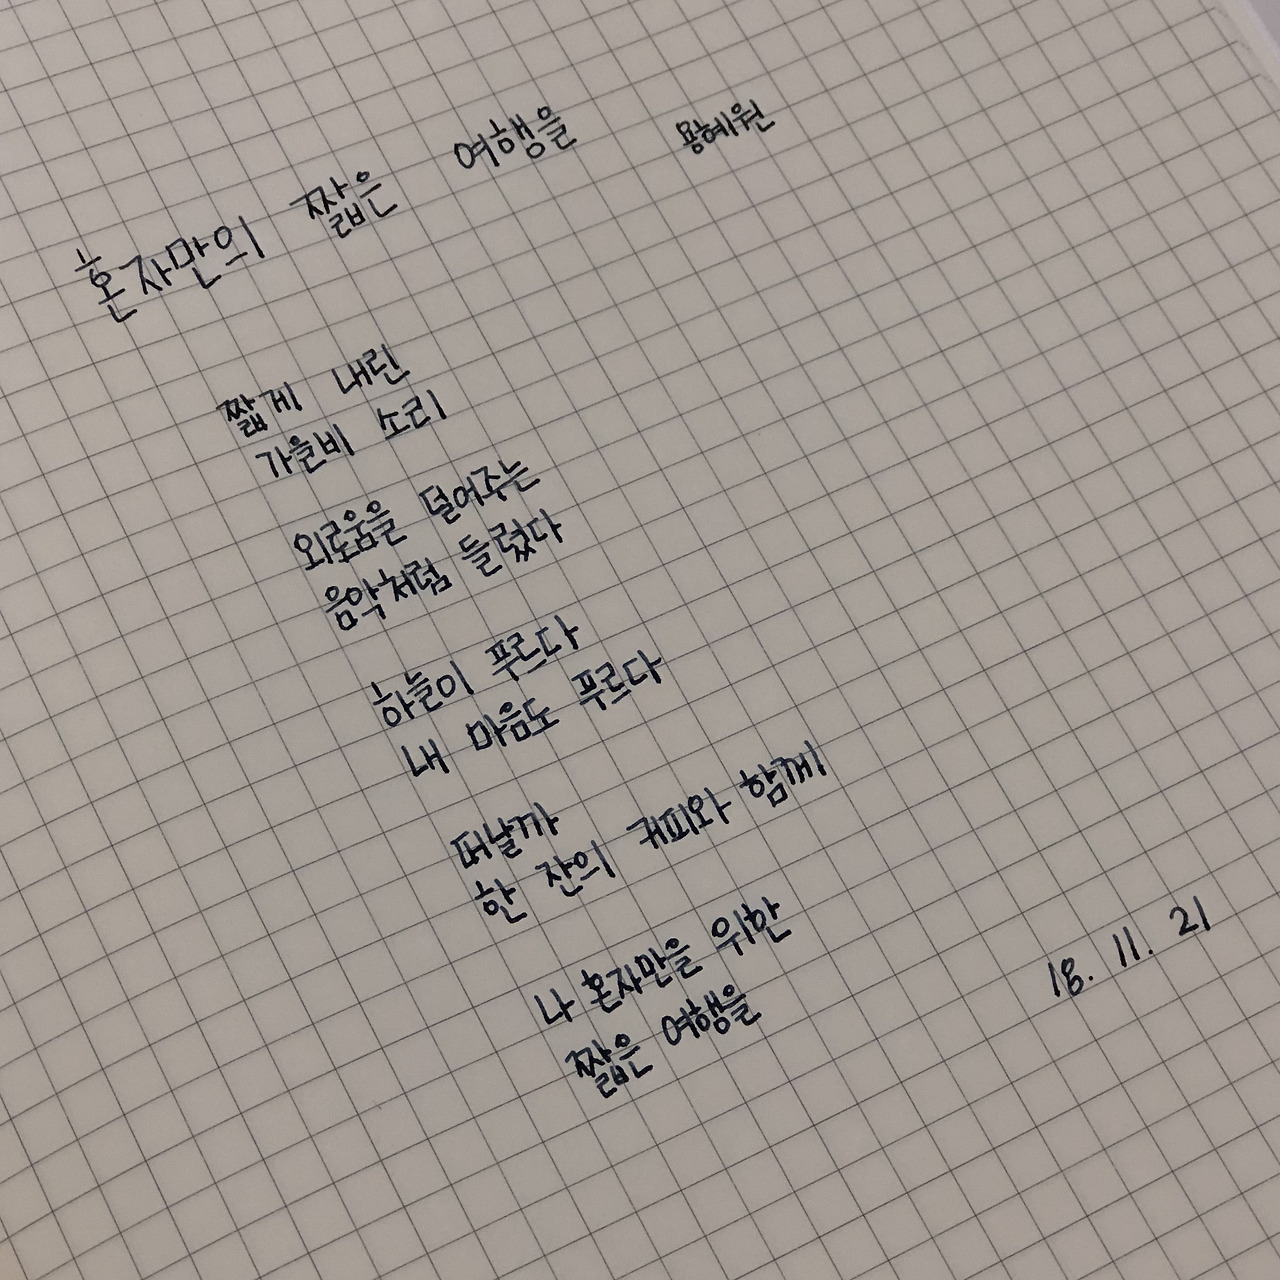 혼자만의 짧은 여행을 용혜원
짧게 내린
가을비 소리
외로움을 덜어주는
음악처럼 들렸다
하늘이 푸르다
내 마음도 푸르다
떠날까
한 잔의 커피와 함께
나 혼자만을 위한
짧은 여행을
18. 11. 21